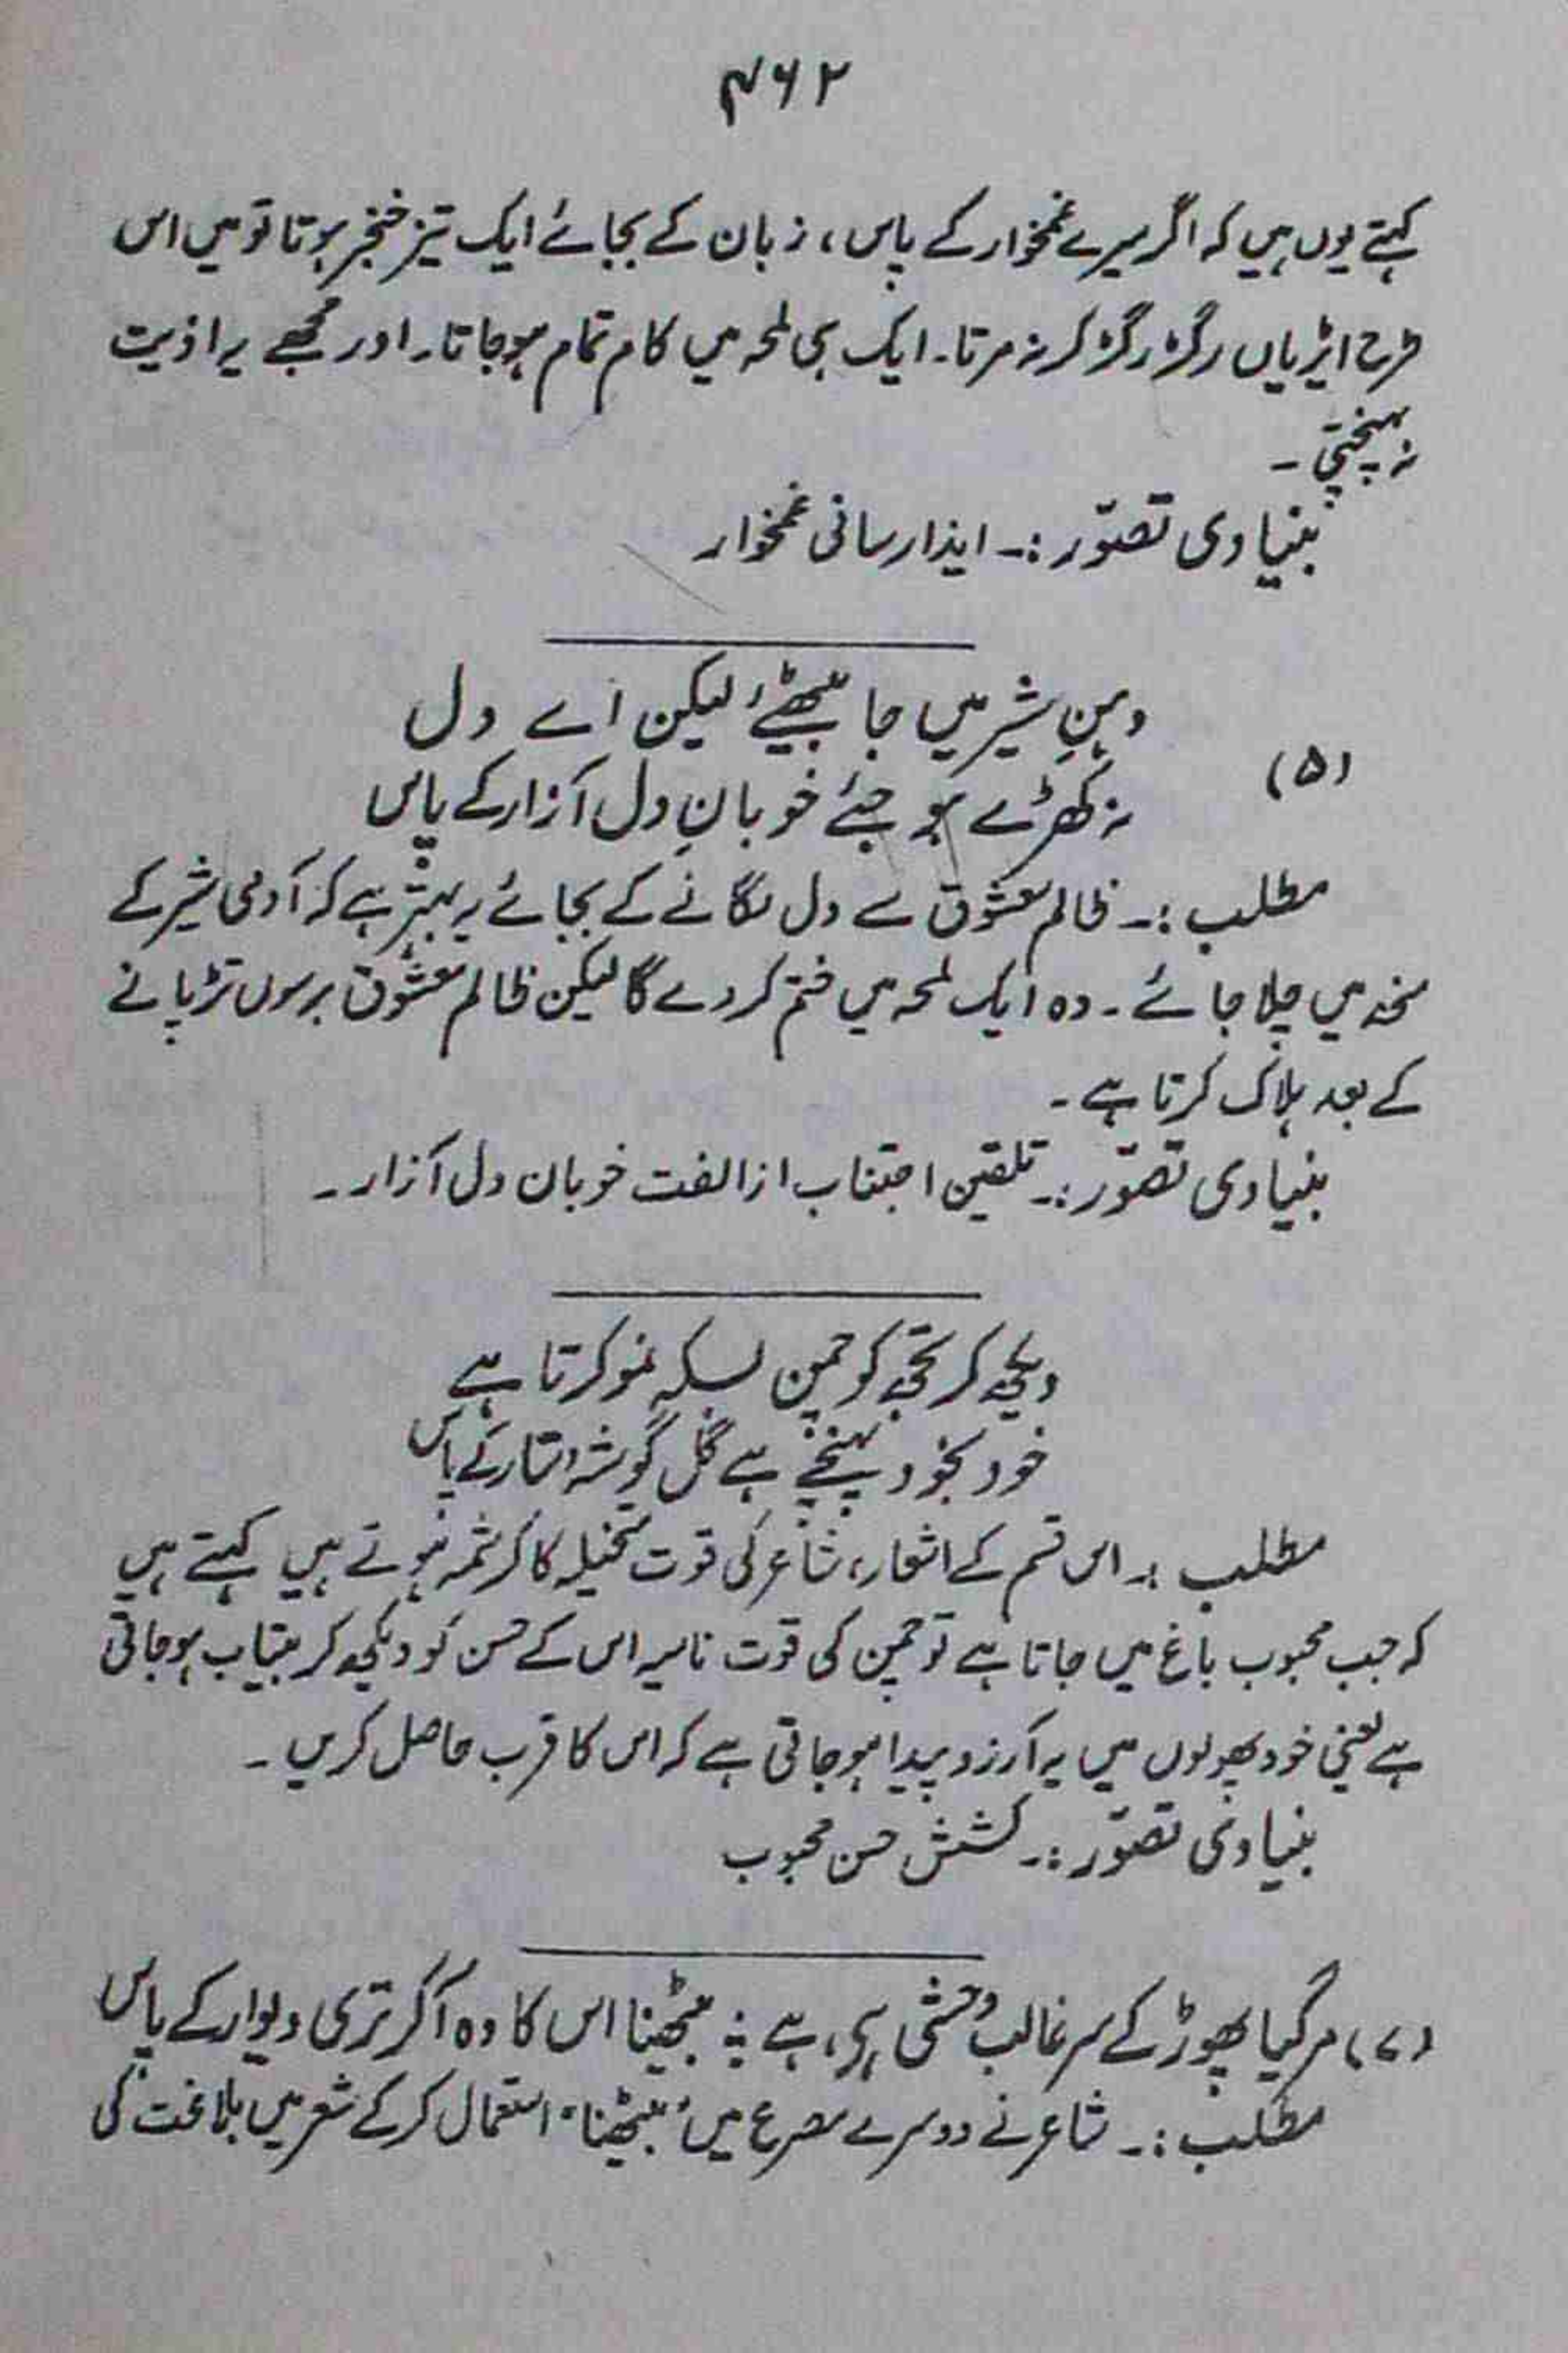 ۴۶۲
کہتے یوں ہیں کہ اگر میرے غمخوار کے پاس، زبان کے بجائے ایک تیز خنجر ہوتا تو میں اس
طرح ایڑیاں رگڑ رگڑ کر نہ مرتا۔ ایک ہی لمحہ میں کام تمام ہوجاتا۔ اور مجھے یہ اذیت
نہ پہنچتی۔
بنیادی تصوّر :۔ ایذا رسانی غمخوار
دہنِ شیر میں جا بیٹھئے، لیکن اے دل
(۵)
نہ کھڑے ہو جئے خوبانِ دل آزار کے پاس
مطلب :۔ ظالم معشوق سے دل لگانے کے بجائے یہ بہتر ہے کہ آدمی شیر کے
منھ میں چلا جائے۔ وہ ایک لمحہ میں ختم کر دے گا لیکن ظالم معشوق برسوں تڑپانے
کے بعد ہلاک کرتا ہے۔
بنیادی تصوّر :۔ تلقین اجتناب از الفت خوبان دل آزار۔
دیکھ کر تجھ کو چمن بسکہ نمو کرتا ہے
خود بخود پہنچے ہے گل گوشۂ دستار کے پاس
مطلب :۔ اس قسم کے اشعار، شاعر کی قوت متخیلہ کا کرشمہ ہوتے ہیں کہتے ہیں
کہ جب محبوب باغ میں جاتا ہے تو چمن کی قوت نامیہ اس کے حسن کو دیکھ کر بیتاب ہوجاتی
ہے یعنی خود پھولوں میں یہ آرزو پیدا ہوجاتی ہے کہ اس کا قرب حاصل کریں۔
بنیادی تصوّر :۔ کشش حسن محبوب
(۷) مر گیا پھوڑ کے سر غالب وحشی ہے، ہے ؛ بیٹھنا اس کا وہ آکر تری دیوار کے پاس
مطلب :۔ شاعر نے دوسرے مصرع میں "بیٹھنا" استعمال کرکے شعر میں بلاغت کی